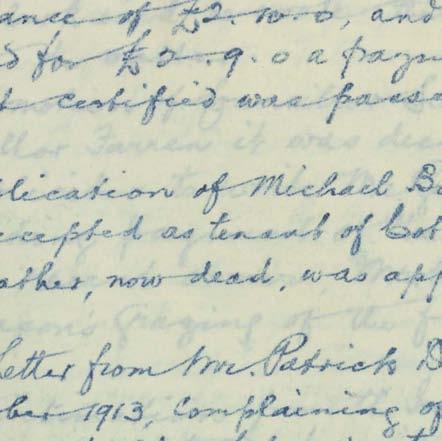 ance of £2.10.0, and
d for £2.9.0 a paym
t certified was passe
llor Farren it was dec
lication of Michael B
ccepted as tenant of Cot
ather, now dead, was app
Letter from Mr. Patrick D
ber 1913, complaining of